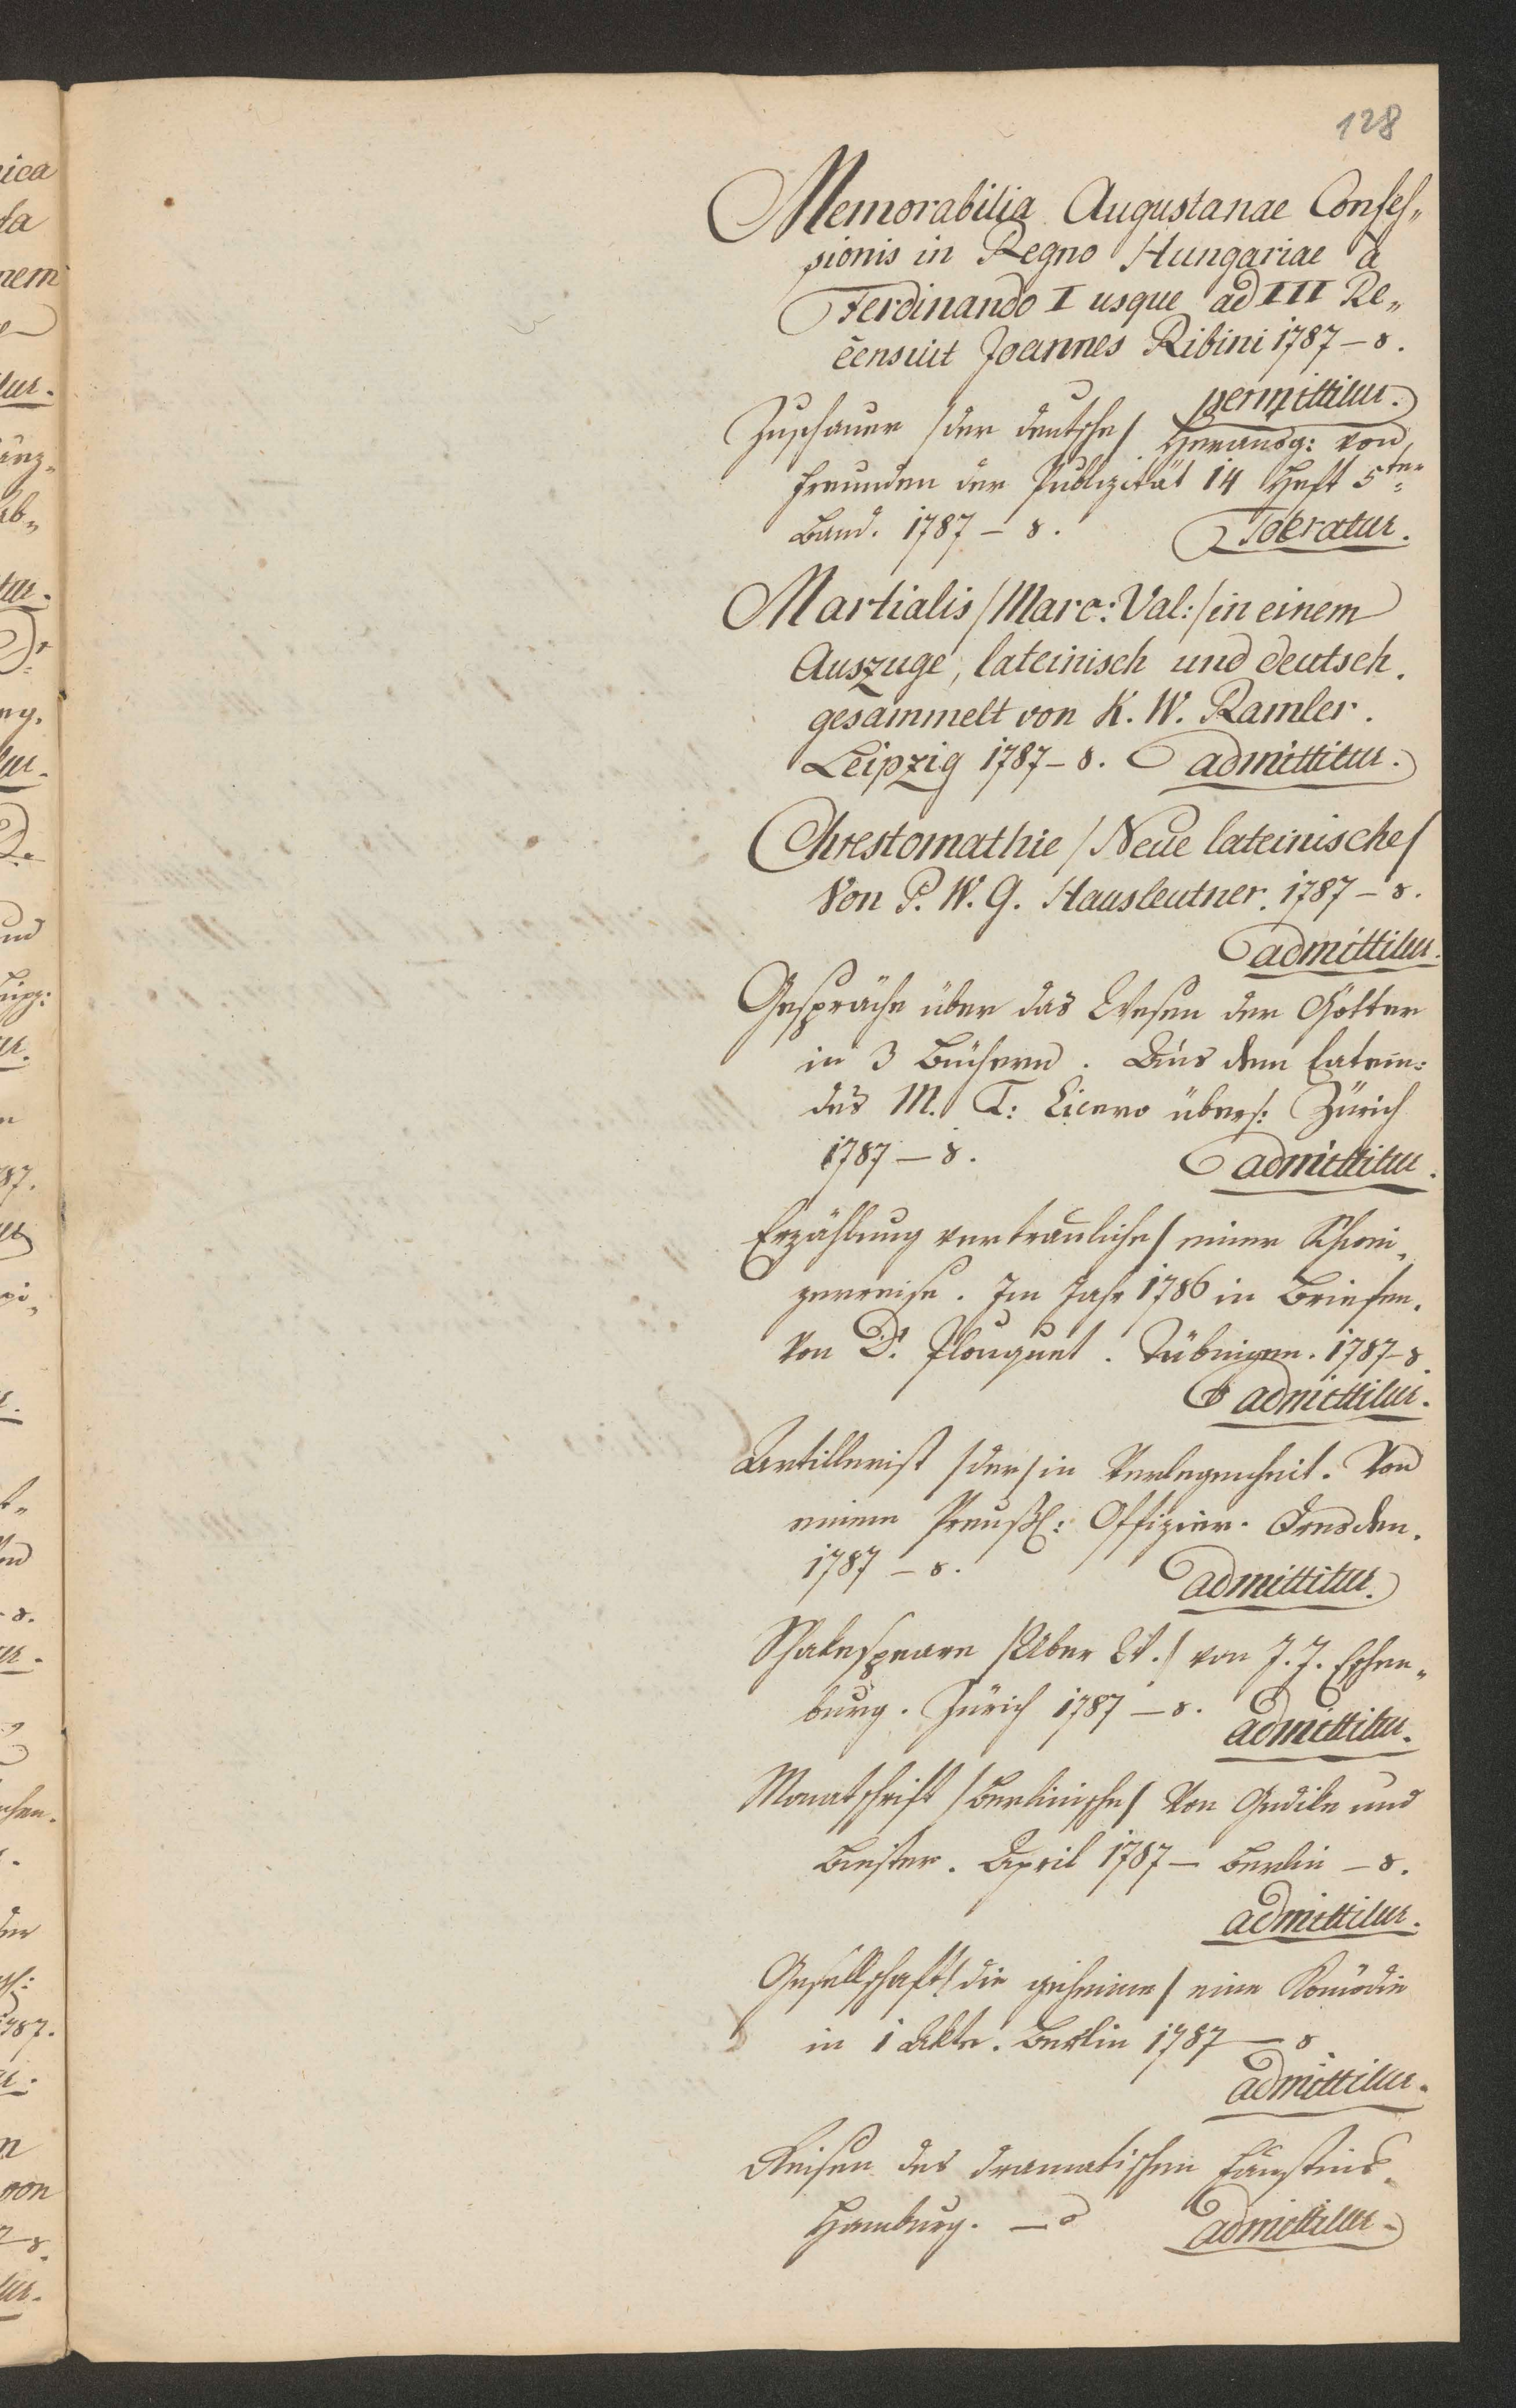 128
Memorabilia Augustanae Confes„
sionis in Regno Hungariae à
Ferdinando I usque ad III Re„
censuit Joannes Ribini 1787 – 8.
permittitur.
Zuschauer /der deutsche/ Herausg: von
Freunden der Publizität 14 Heft 5ter
Band. 1787 – 8.
Toleratur.
Martialis /Marc: Val:/ in einem
Auszuge, lateinisch und deutsch.
gesammelt von K. W. Ramler.
Leipzig 1787 – 8. admittitur.
Chrestomathie /Neue lateinische/
Von P. W. G. Hausleutner. 1787 – 8.
admittitur.
Gespräche über das Wesen der Götter
in 3 Büchern. Aus dem Latein:
des M. T: Cicero übers: Zürich
1787 – 8. admittitur.
Erzählung vertrauliche/ einer Schwei„
zerreise. Im Jahr 1786 in Briefen.
Von Dr. Plouquet. Tübingen. 1787 – 8.
admittitur.
Artillerist /der/ in Verlegenheit. Von
einem Preußl: Offizier. Dresden.
1787 – 8.
admittitur.
Shakespeare /Über W./ von J. J. Eschen„
burg. Zürich 1787 – 8.
admittitur.
Monatschrift /Berlinische/ Von Gedike und
Biester. April 1787 – Berlin – 8.
admittitur.
Gesellschaft /die geheime/ eine Komödie
in 1 Akte. Berlin 1787 – 8
admittitur.
Reisen des dramatischen Faustins.
Hamburg. – 8 admittitur.